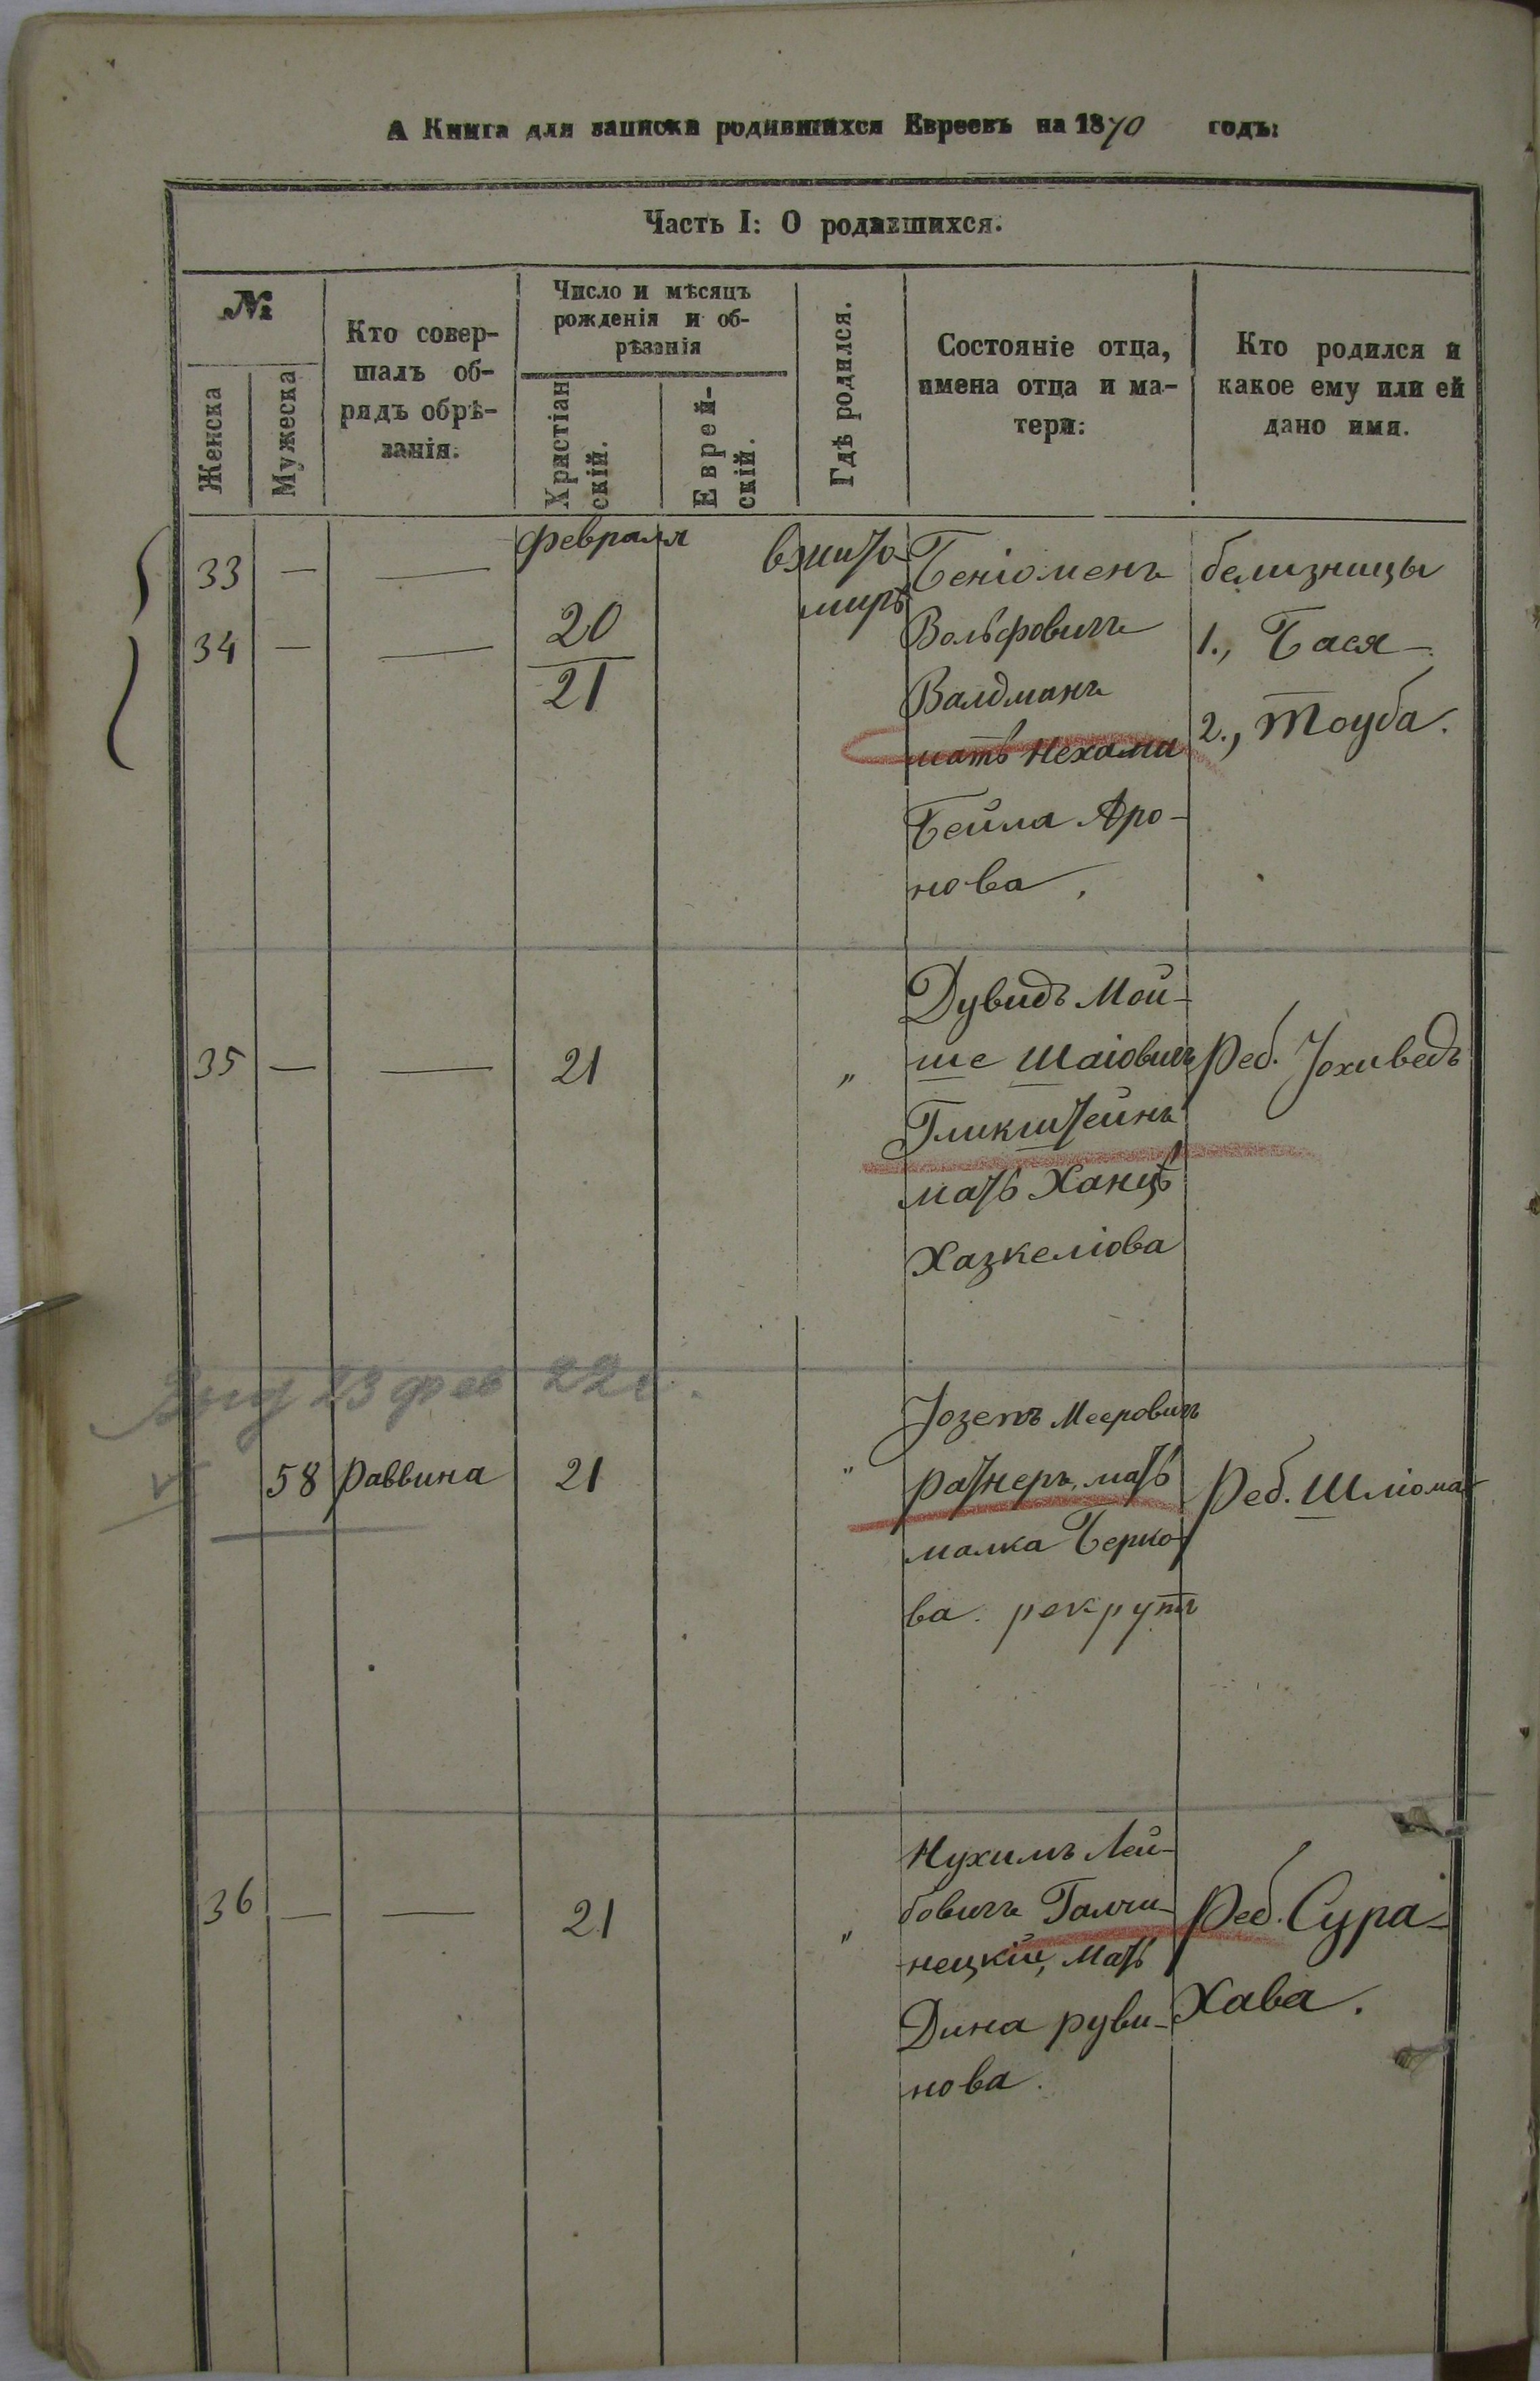 А Книга для записки родившихся Евреевъ на 1870 годъ:
Часть I: О родившихся.
№
Женска
Мужеска
Кто совер-
шалъ об-
рядъ обрѣ-
занія.
Число и мѣсяцъ
рожденія и об-
рѣзанія
Христіан
скій.
Еврей-
скій.
Гдѣ родился.
Состояніе отца,
имена отца и ма-
тери:
Кто родился и
какое ему или ей
дано имя.
33 — —
34 — —
февраля
20
21
в жито-
мирѣ
Беніоменъ
Вольфовичъ
Валдманъ
мать Нехама
Бейла Аро-
нова.
близницы
1., Бася —
2., Тоуба.
35 — — 21 „
Дувидъ Мой-
ше Шаіовичъ
Гликштейнъ
мать Ханцѣ
Хазкеліова
Реб. Іохиведъ
23 фев 22
58 Раввина 21 „
Іозепъ Мееровичъ
Ратнеръ, мать
малка Берко-
ва. рекрутъ
Реб. Шліома
36 — — 21 „
Нухимъ Лей-
бовичъ Галчи-
нецкій, мать
Дина руви-
нова.
Реб. Сура-
Хава.